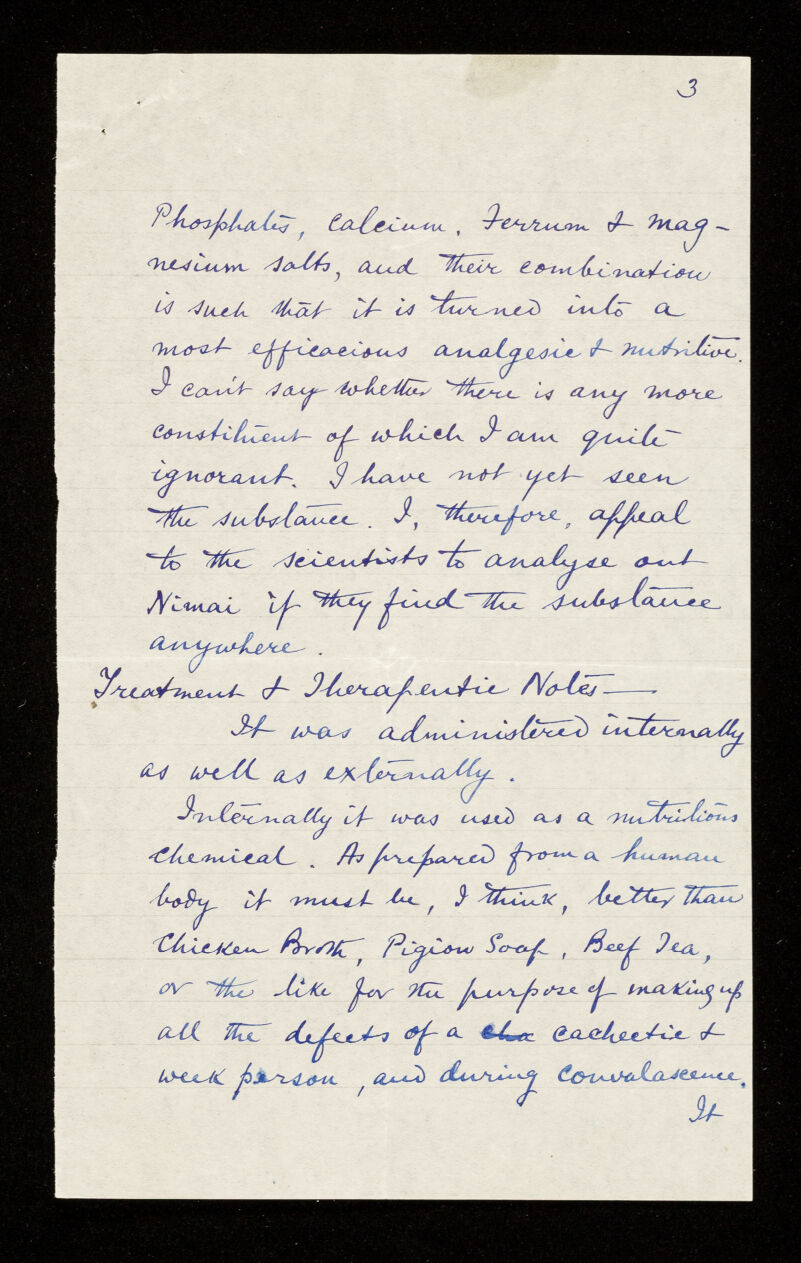 3
Phosphates, calcium, Ferrum & mag-
nesium salts, and their combination
is such that it is turned into a
most efficacious analgesic & nutritive.
I can't say whether there is any more
constituent of which I am quite
ignorant. I have not yet seen
the substance. I, therefore, appeal
to the scientists to analyse out
Nimai if they find the substance
anywhere.
Treatment & Therapeutic Notes—
It was administered internally
as well as externally.
Internally it was used as a nutritions
chemical. As prepared from a human
body it must be, I think, better than
Chicken Broth, Pigion Soap, Beef Tea,
or the like for the purpose of making up
all the defects of a cha cachectic &
week person, and during convalascence.
It